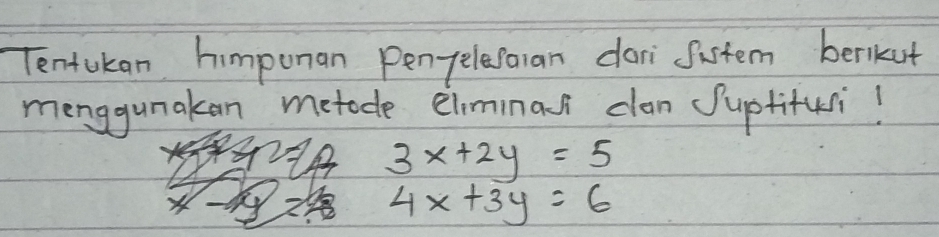 Tentukan himpunan Penyelesaian dari Sistem berikut
menggunakan metode eliminasi dan Suptitusi !
3x+2y = 5
4x+3y = 6